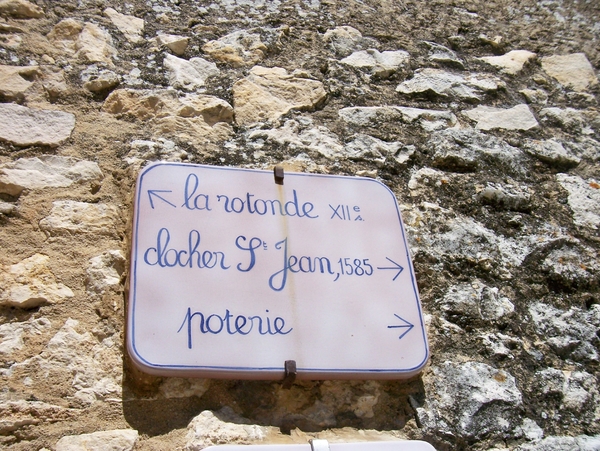 ← la rotonde XIIe s.
clocher St Jean, 1585 →
poterie →